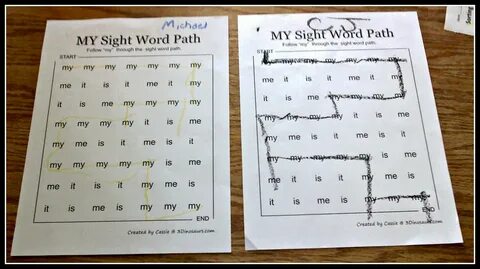 Michael
MY Sight Word Path
Follow "my" through the sight word path.
START
my my my my my my my
me it is it me it my
it is me my my my my
my my my my it is me
my me is it me is it
my my my my my is me
me it is me my is it
it is me is my my my
END
Created by Cassie @ 3Dinosaurs.com
MY Sight Word Path
Follow "my" through the sight word path.
START
my my my my my my my
me it is it me it my
it is me my my my my
my my my my it is me
my me is it me is it
my my my my my is me
me it is me my is it
it is me is my my my
END
Created by Cassie @ 3Dinosaurs.com